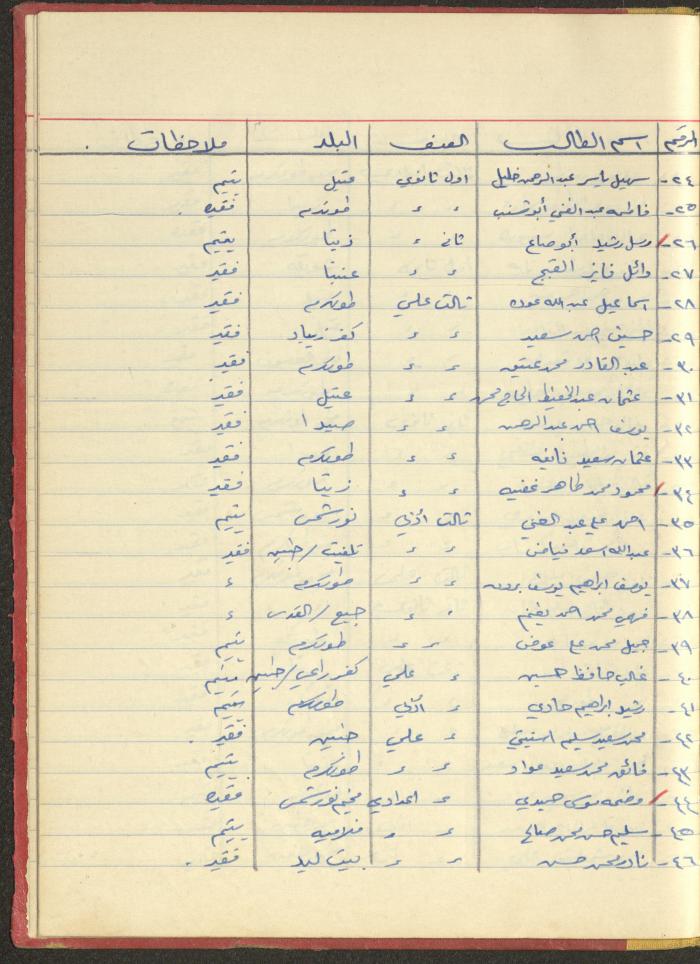 الرقم اسم الطالب الصف البلد ملاحظات .
٢٤- سهيل ياسر عبد الرحمن خليل اول ثانوي عتيل يتيم
٢٥- فاطمه عبد الغني أبو شنب ء ء طولكرم فقيره .
٢٦- رشيد أبو صاع ثاني ء زيتا يتيم
٢٧- وائل فايز القبج ء ء عنبتا فقير
٢٨- اسماعيل عبد الله عوده ثالث علمي طولكرم فقير
٢٩- حسين احمد سعيد ء ء كفر زيباد فقير
٣٠- عبد القادر محمد عتيق ء ء طولكرم فقير
٣١- عثمان عبد الحفيظ الحاج محمد ء ء عتيل فقير
٣٢- يوسف احمد عبد الرحمن ء ء صيدا فقير
٣٣- عثمان سعيد نايفه ء ء طولكرم فقير
٣٤- محمود محمد طاهر ء ء زيتا فقير
٣٥- احمد علي عبد الغني ثالث أدبي نور شمس يتيم
٣٦- عبد الله اسعد فياض ء ء تلفيت / جنين فقير
٣٧- يوسف ابراهيم يوسف ء ء طولكرم ء
٣٨- فهمي محمد احمد ء ء جبع / القدس ء
٣٩- جميل محمد علي عوض ء ء طولكرم يتيم
٤٠- غالب حافظ حسين ء علمي كفر راعي / جنين يتيم
٤١- رشيد ابراهيم حادي ء أدبي طولكرم يتيم
٤٢- محمد سعيد سليم ء علمي جنين فقير .
٤٣- فائق محمد سعيد عواد ء ء طولكرم يتيم
٤٤- موسى حميدي ء اعدادي مخيم نور شمس فقيره
٤٥- سليم حسن محمد صالح ء ء فلاميه يتيم
٤٦- نادر محمد حسن ء ء بيت ليد فقير .